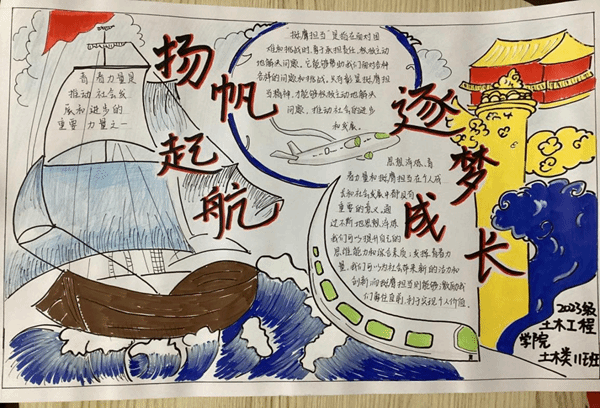 扬帆起航
逐梦成长
青春力量是
推动社会发
展和进步的
重要力量之一
挺膺担当"是指在面对困
难和挑战时,勇于承担责任,积极主动
地解决问题。它能够帮助我们面对各种
各样的问题和挑战。只有彰显挺膺担
当精神,才能够积极主动地解决
问题、推动社会的进步
和发展。
思想淬炼、青
春力量和挺膺担当在个人成
长和社会发展中都具有
重要的意义。通
过不断地思想淬炼
我们可以提升自己的
思维能力和综合素质;发挥青春力
量,我们可以为社会带来新的活力和
创新;而挺膺担当则能够激励我
们勇往直前,利于实现个人价值。
2023级
土木工程
学院
土木类11班